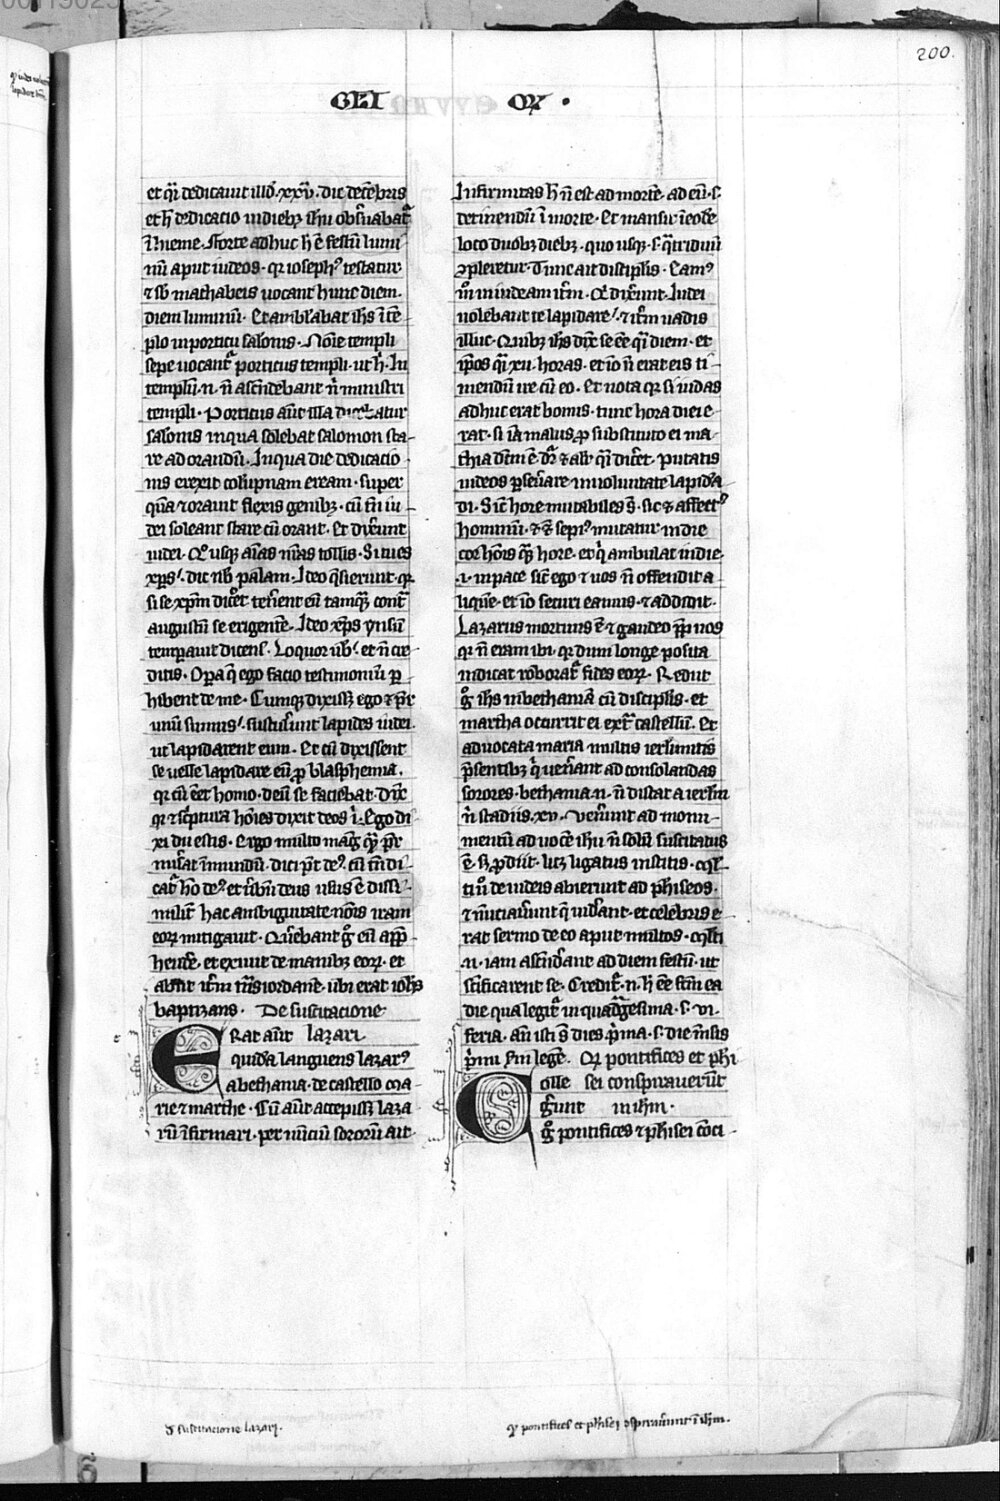 200.
GLI OR .
et qr̄ dedicauit illd̄. xxv̄. die decēbris
et h̄ dedicacio in diebꝫ ihu obs̄uabat᷑
Hieme. Forte adhuc h̄ ē festū lumi-
nū aput iudeos. qr ioseph᷒ testatur
⁊ sb̄ machabeis uocant hunc diem.
diem luminū. Et amblabat ihs ī tē-
plo in porticu salonis. Noīe templi
sepe uocant᷑ porticus templi. ut h̄. In
templū .n. nō ascēdebant nī ministri
templi. Porticus aūt illa dicebatur
salonis in qua solebat salomon sta-
re ad orandū. In qua die dedicacio-
nis erexit colūpnam eream. super
quā ⁊ orauit flexis genibꝫ. cū tn̄ iu-
dei soleant stare cū orant. Et dixerunt
iudei. Qo usqꝫ aīas nr̄as tollis. Si tu es
xp̄s. dic nb̄ palam. Ideo q̄sierunt. qr
si se xp̄m diceret tenerent eū tamqꝫ contra
augustū se erigentē. Ideo xp̄s r̄nsū
temperauit dicens. Loquor ub̄. et n̄ cre-
ditis. Opera q̄ ego facio testimoniū ꝑ-
hibent de me. Cumqꝫ dixissꝫ ego ⁊ pr̄
unū sumus. sustulerunt lapides iudei.
ut lapidarent eum. Et cū dixissent
se uelle lapidare eū ꝓ blasphemia.
qr cū eēt homo. deū se faciebat. Dixit
qr ⁊ sc̄ptura hoīes dixit deos .i. Ego di-
xi dii estis. Ergo multo mag̃ quē pr̄
misit ī mundū. dici pōt de᷒. cū tn̄ di-
cat᷑ ho de᷒ et ubū deus
milit᷑ hac ambiguitate noīs iram
eoꝝ mitigauit. Querebant g̊ eū app̄-
hendere. et exiuit de manibꝫ eoꝝ. et
abiit itm̄ trans iordanē. ubi erat iohēs
baptizans. De suscitacione
Erat aūt lazari
quidā languens lazar᷒
a bethania. de castello ma-
rie ⁊ marthe. Cū aūt accepissꝫ laza-
rū īfirmari. per nūciū sororū ait.
Infirmitas h̄ n̄ est ad mortē. ad eū .s.
detinendū ī morte. Et mansit ī eodē
loco duobꝫ diebꝫ. quo usqꝫ .s. q̄triduū
ꝯpleretur. Tunc ait discipl̄is. Eam᷒
in iudeam itm̄. Qi dixerunt. Iudei
uolebant te lapidare. ⁊ itm̄ uadis
illuc. Quibꝫ ihs dixit se eē q̄i diem. et
ip̄os q̄i xii. horas. et iō n̄ erat eis ti-
mendū ire cū eo. Et nota qr si iudas
adhuc erat bonus. tunc hora diei e-
rat. si iā malus. ꝓ substituto ei ma-
thia dc̄m ē. Dr̄ ⁊ alr̄ q̄i diceret. putatis
iudeos perseuerare in uoluntate lapida-
di. Sic̄ hore mutabiles s̄. sic ⁊ affect᷒
hominū. ⁊ sepi᷒ mutatur in die
cor hoīs q̄ꝫ hore. et q̄ ambulat in die.
.i. in pace sic̄ ego ⁊ uos n̄ offendit a-
liquē. et iō securi eamus. ⁊ addidit.
Lazarus mortuus ē ⁊ gaudeo ꝓp̄ uos
qr n̄ eram ibi. qr dum longe posita
indicat roborat᷑ fides eoꝝ. Rediit
g̊ ihs in bethaniā cū discipl̄is. et
martha occurrit ei ext᷑ castellū. Et
aduocata maria multis ierl̄imitis
p̄sentibꝫ q̄ uenerant ad consolandas
sorores. bethania .n. n̄ distat a ierl̄m
nī stadiis. xv. Venerunt ad monu-
mentū ad uocē ihu n̄ solū suscitatus
ē. sꝫ ꝓdiit. licꝫ ligatus institis.
de iudeis abierunt ad phīseos.
⁊ nūciauerunt q̄ uiderant. et celebris e-
rat sermo de eo aput multos.
.n. iam ascenderant ad diem festū. ut
sc̄ificarent se. Credit᷑ .n. h̄ eē fc̄m ea
die qua legit᷑ in quadragesima .s. vi.
feria. an̄ isti s̄ dies. p̄ma .s. die mēsis
p̄mi Fm̄ legē. Qꝝ pontifices et phi-
Colle sei conspirauerūt
gerunt in ihm.
g̊ pontifices ⁊ phīsei conci-
De suscitacione lazari.
Qꝝ pontifices et phīsei ꝯspirauerunt ī ihm.